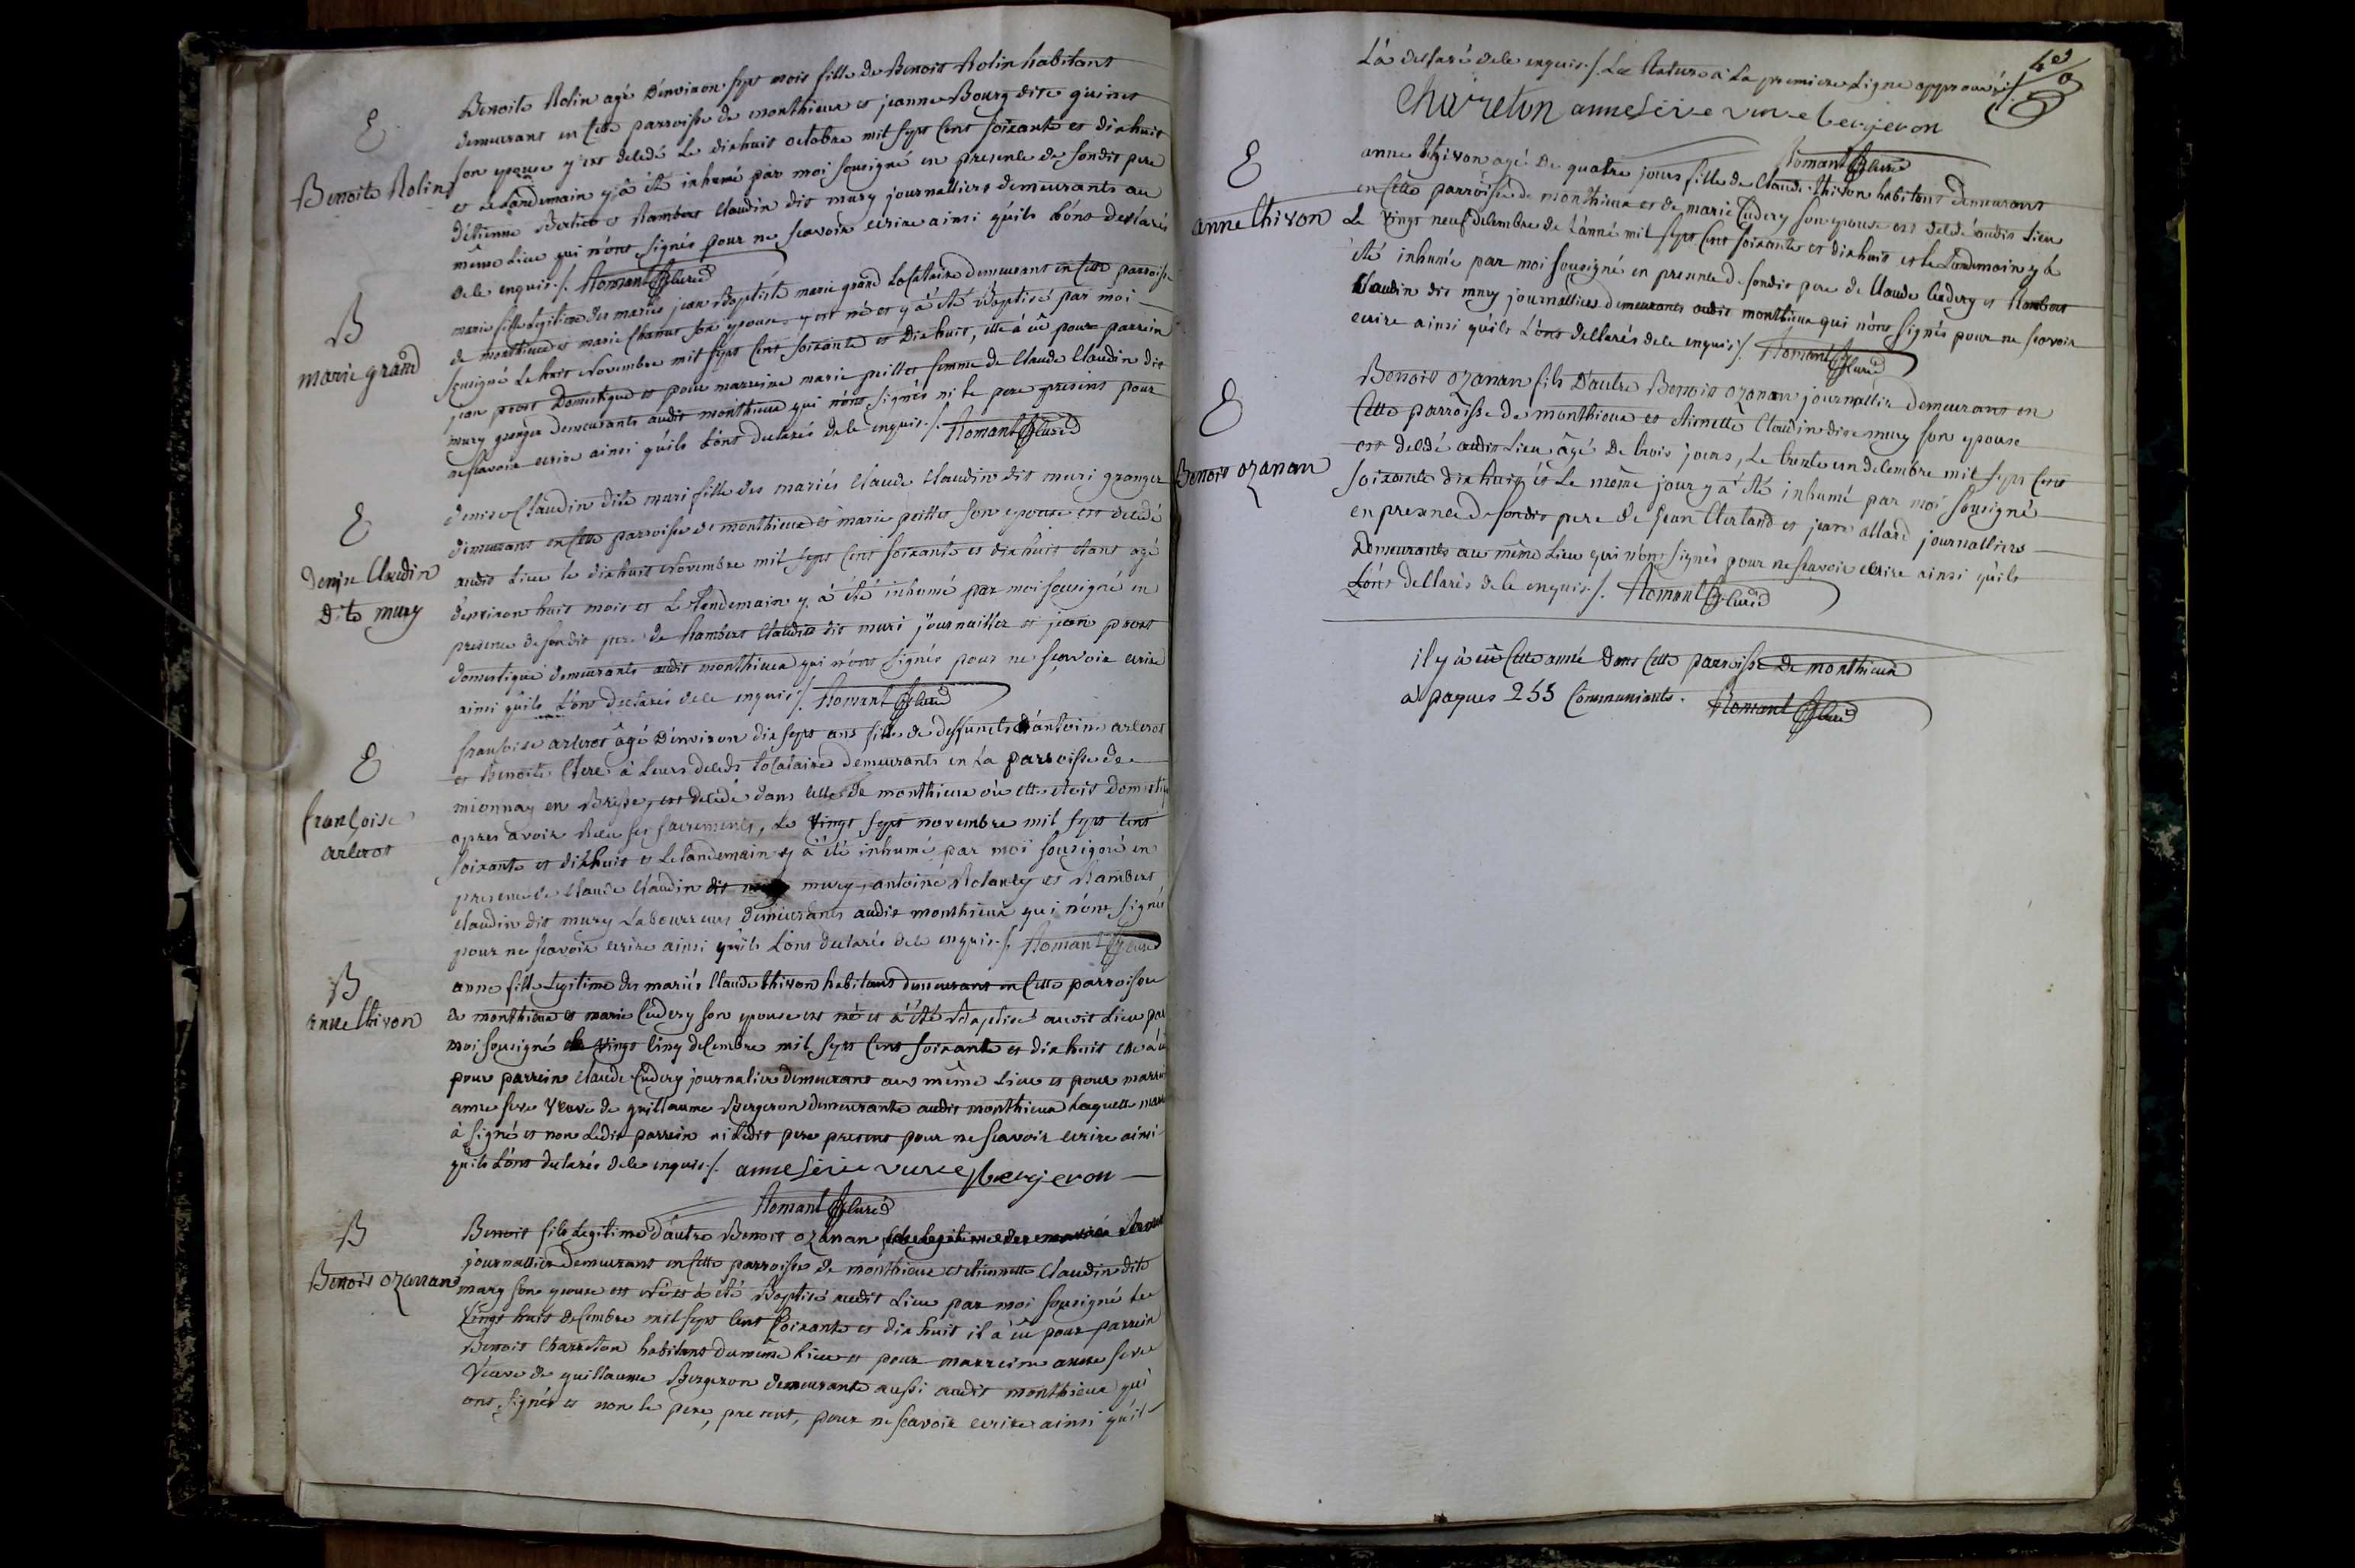 E
Benoite Rolin
Benoite Rolin agé d'environ sept mois fille de Benoit Rolin habitant
demeurant en cette parroisse de monthieux et jeanne Bourg dite quinet
son epouse y est decedé Le dix huit octobre mil sept cent soixante et dix huit
et Le landemain y a été inhumé par moi sousigné en presence de sondit pere
d'étienne et Rambert Claudin dit mury journalliers demeurants au
même Lieu qui n'ont signés pour ne scavoir ecrire ainsi qu'ils L'ont declarés
de ce enquis ./. Romant Curé
B
marie grand
marie fille Legitime des mariés jean Baptiste marie grand Locataire demeurant en cette parroisse
de monthieux et marie Chanut son epouse y est né et y a été Baptisé par moi
sousigné Le huit Novembre mil sept cent soixante et dix huit, elle à eû pour parrein
jean prost Domestique et pour marreine marie peillet femme de Claude Claudin dit
mury granger demeurants audit monthieux qui n'ont signés ni le pere presents pour
ne scavoir ecrire ainsi qu'ils L'ont declarés de ce enquis ./. Romant Curé
E
Denise Claudin
Dite mury
denise Claudin dite muri fille des mariés Claude Claudin dit muri granger
demeurant en cette parroisse de monthieux et marie peillet son epouse est decedé
audit Lieu le dix huit Novembre mil sept cent soixante et dix huit etant agé
d'environ huit mois et Le lendemain y a été inhumé par moi sousigné en
presence de sondit pere de Rambert Claudin dit muri journaillier et jean prost
domestique demeurants audit monthieux qui n'ont signés pour ne scavoir ecrire
ainsi qu'ils L'ont declarés de ce enquis ./. Romant Curé
E
françoise
arlerot
françoise arlerot âgé d'environ dix sept ans fille de deffuncts d'antoine arlerot
et Benoite Clere à Leurs deceds Locataire demeurants en La parroisse de
mionnay en Bresse, est decedé dans celle de monthieux où elle etoit domestiq
apres avoir Recu ses sacrements, Le vingt sept novembre mil sept cent
soixante et dix huit et Le landemain y a été inhumé par moi sousigné en
presence de Claude Claudin dit mury, antoine et Rambert
Claudin dit mury Laboureurs demeurants audit monthieux qui n'ont signé
pour ne scavoir ecrire ainsi qu'ils L'ont declarés de ce enquis ./. Romant Curé
B
anne thivon
anne fille Legitime des mariés Claude thivon habitant demeurant en cette parroisse
de monthieux et marie Cudery son epouse est né et a été Baptisé audit Lieu par
moi sousigné le vingt cinq decembre mil sept cent soixante et dix huit elle à eû
pour parrein Claude Cudery journalier demeurant au même Lieu et pour marrei
anne seve veuve de guillaume Bergeron demeurante audit monthieux Laquelle marr
à signé et non Ledit parrein ni Ledit pere presents pour ne scavoir ecrire ainsi
qu'ils L'ont declarés de ce enquis ./. anne seve veuve bergeron
Romant Curé
B
Benoit ozanan
Benoit fils Legitime d'autre Benoit ozanan fils legitime des mariés Benoit
journallier demeurant en cette parroisse de monthieux et etiennette Claudin dite
mury son epouse est né et à été Baptisé audit Lieu par moi sousigné Le
vingt huit decembre mil sept cent soixante et dix huit il a eû pour parrein
Benoit Charreton habitant du meme lieu et pour marreine anne seve
veuve de guillaume Bergeron demeurante aussi audit monthieux qui
ont signés et non le pere, present, pour ne scavoir ecrire ainsi qu'il
L'a desclaré de ce enquis ./. La Rature a La premiere Ligne approuvé ./.
Charreton anne seve veuve bergeron
Romant Curé
E
anne thivon
anne thivon agé de quatre jours fille de Claude thivon habitant demeurant
en cette parroisse de monthieux et de marie Cudery son epouse est decdé audit Lieu
Le vingt neuf decembre de L'année mil sept cent soixante et dix huit et le Landemain y à
été inhumé par moi sousigné en presence de sondit pere de Claude Cudery et Rambert
Claudin dit mury journalliers demeurants audit monthieux qui n'ont signés pour ne scavoir
ecrire ainsi qu'ils L'ont declarés de ce enquis ./. Romant Curé
E
Benoit ozanan
Benoit ozanan fils d'autre Benoit ozanan journallier demeurant en
Cette parroisse de monthieux et etiennette Claudin dite mury son epouse
est decdé audit Lieu âgé de trois jours, Le trente un decembre mil sept cent
soixante dix huit et Le même jour y a été inhumé par moi sousigné
en presence de sondit pere de jean Clerland et jean allard journalliers
Demeurants au même Lieu qui n'ont signés pour ne scavoir ecrire ainsi qu'ils
L'ont declarés de ce enquis ./. Romant Curé
il y à eû Cette année dans cette parroisse de monthieux
à paques 255 Communiants. Romant Curé